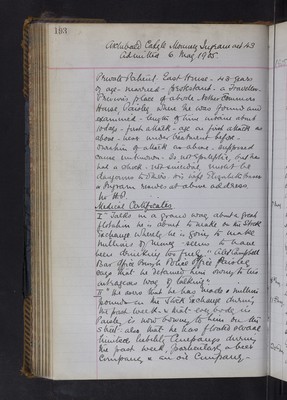 193
Archibald Mowney Ingram aet 43
Admitted 6 May 1905
Private Patient. East House - 43 years
of age - married - protestant - a Traveller.
Previous place of abode
House, Paisley where he was found and
examined - length of time insane about
10 days - first attack - age on first attack as
above - never under treatment before -
duration of attack as above - supposed
cause unknown - Is not Epileptic, but has
had a shock - not suicidal must be
dangerous to others - his wife Elizabeth
Ingram resides at above address.
No H.P.
Medical Certificates
I "Talks in a grand way about a great
he is about to make on the Stock
Exchange whereby he is going to make
millions of money - seems to have
been drinking too freely"
Bar Officer Police Office Paisley
says that he detained him owing to his
outrageous way of talking"
II "He avers that he has made 2 million
pounds on the Stock Exchange during
the past week & that everybody in
Paisley is now bowing to him on the
street also that he has floated several
limited liability Companys during
the past week, particularly a beer
Company & an oil Company -